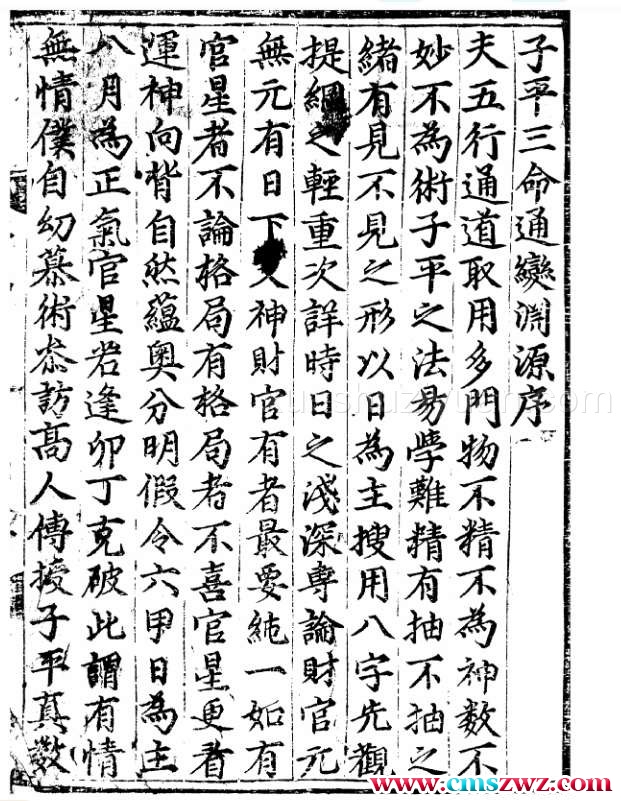 子平三命通變淵源序
夫五行通道取用多門物不精不為神數不
妙不為術子平之法易學難精有抽不抽之
緒有見不見之形以日為主搜用八字先觀
提綱之輕重次詳時日之淺深専論財官元
無元有日下神財官有者最要純一如有
官星者不論格局有格局者不喜官星更看
運神向背自然蘊奥分明假令六甲日為主
八月為正氣官星若逢卯丁克破此謂有情
無情僕自幼慕術叅訪髙人傳授子平真數
www.cmszwz.com